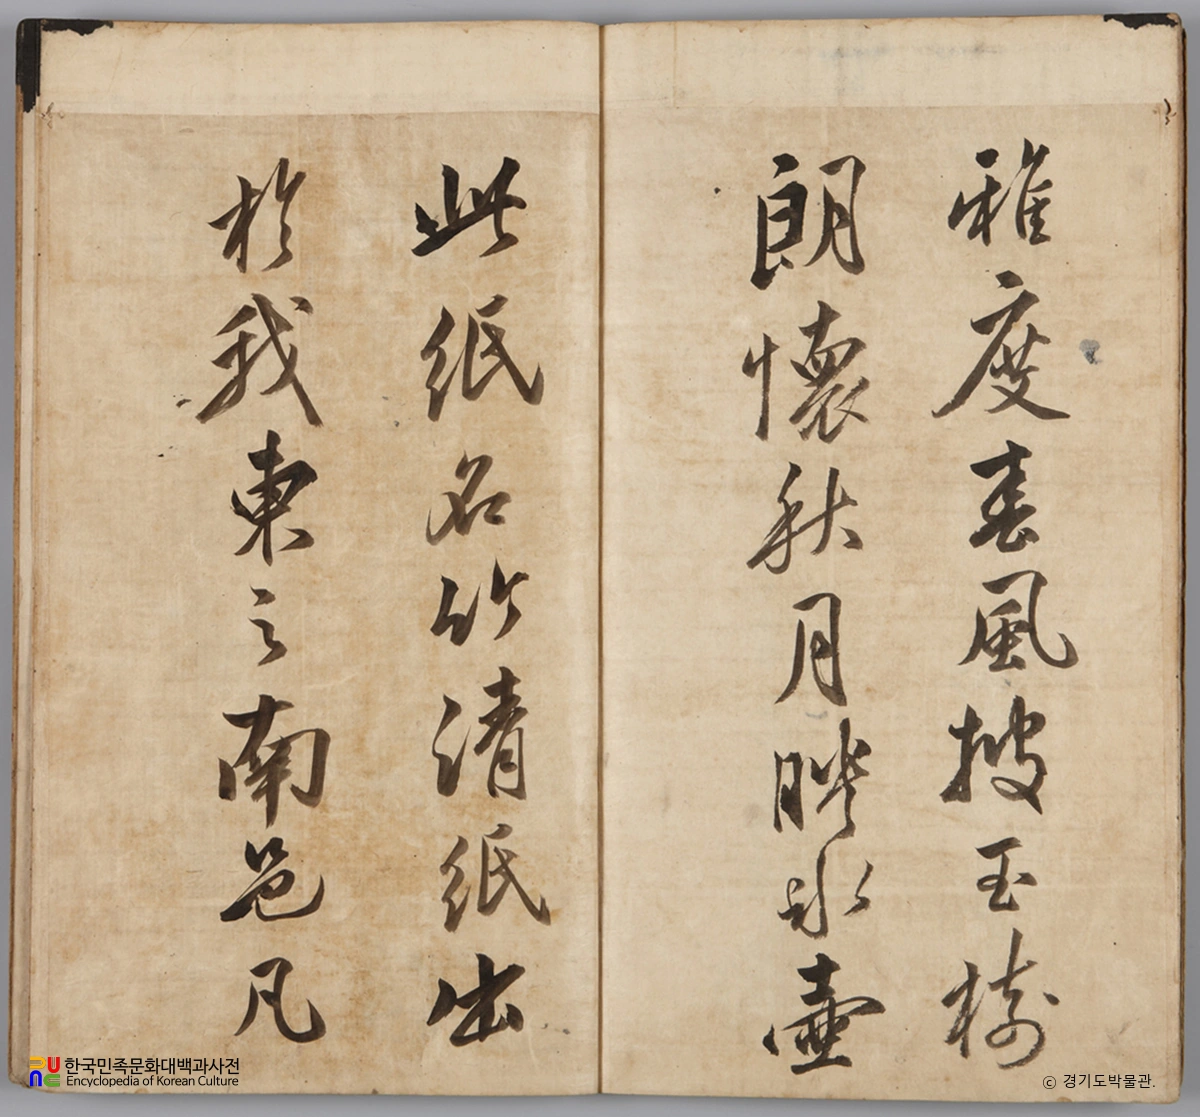 雅度春風披玉樹
朗懷秋月映氷壺
此紙名竹清紙出
於我東之南邑凡
한국민족문화대백과사전
Encyclopedia of Korean Culture
ⓒ 경기도박물관.